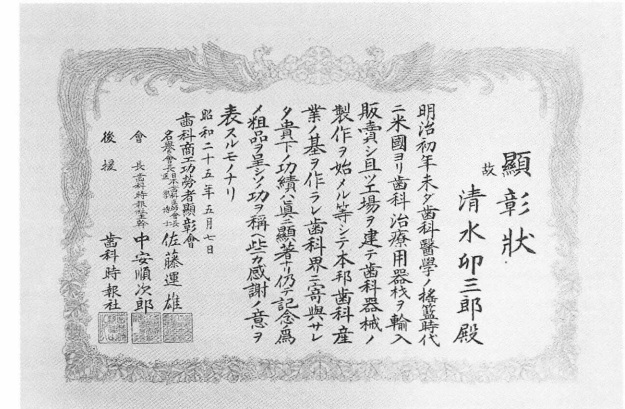 顯彰狀
故 清水卯三郎殿
明治初年未ダ歯科醫學ノ搖籃時代
ニ米國ヨリ歯科治療用器栈ヲ輸入
販賣シ且ツ工場ヲ建テ歯科器械ノ
製作ヲ始メル等シテ本邦歯科産
業ノ基ヲ作ラレ歯科界ニ寄與サレ
タ貴下ノ功績ハ眞ニ顯著ナリ仍テ記念ノ爲
メ粗品ヲ呈シソノ功ヲ稱ヘ些カ感謝ノ意ヲ
表スルモノナリ
昭和二十五年五月七日
歯科商工功勞者顯彰會
名譽會長 佐藤運雄
會長 中安順次郎
後援 歯科時報社